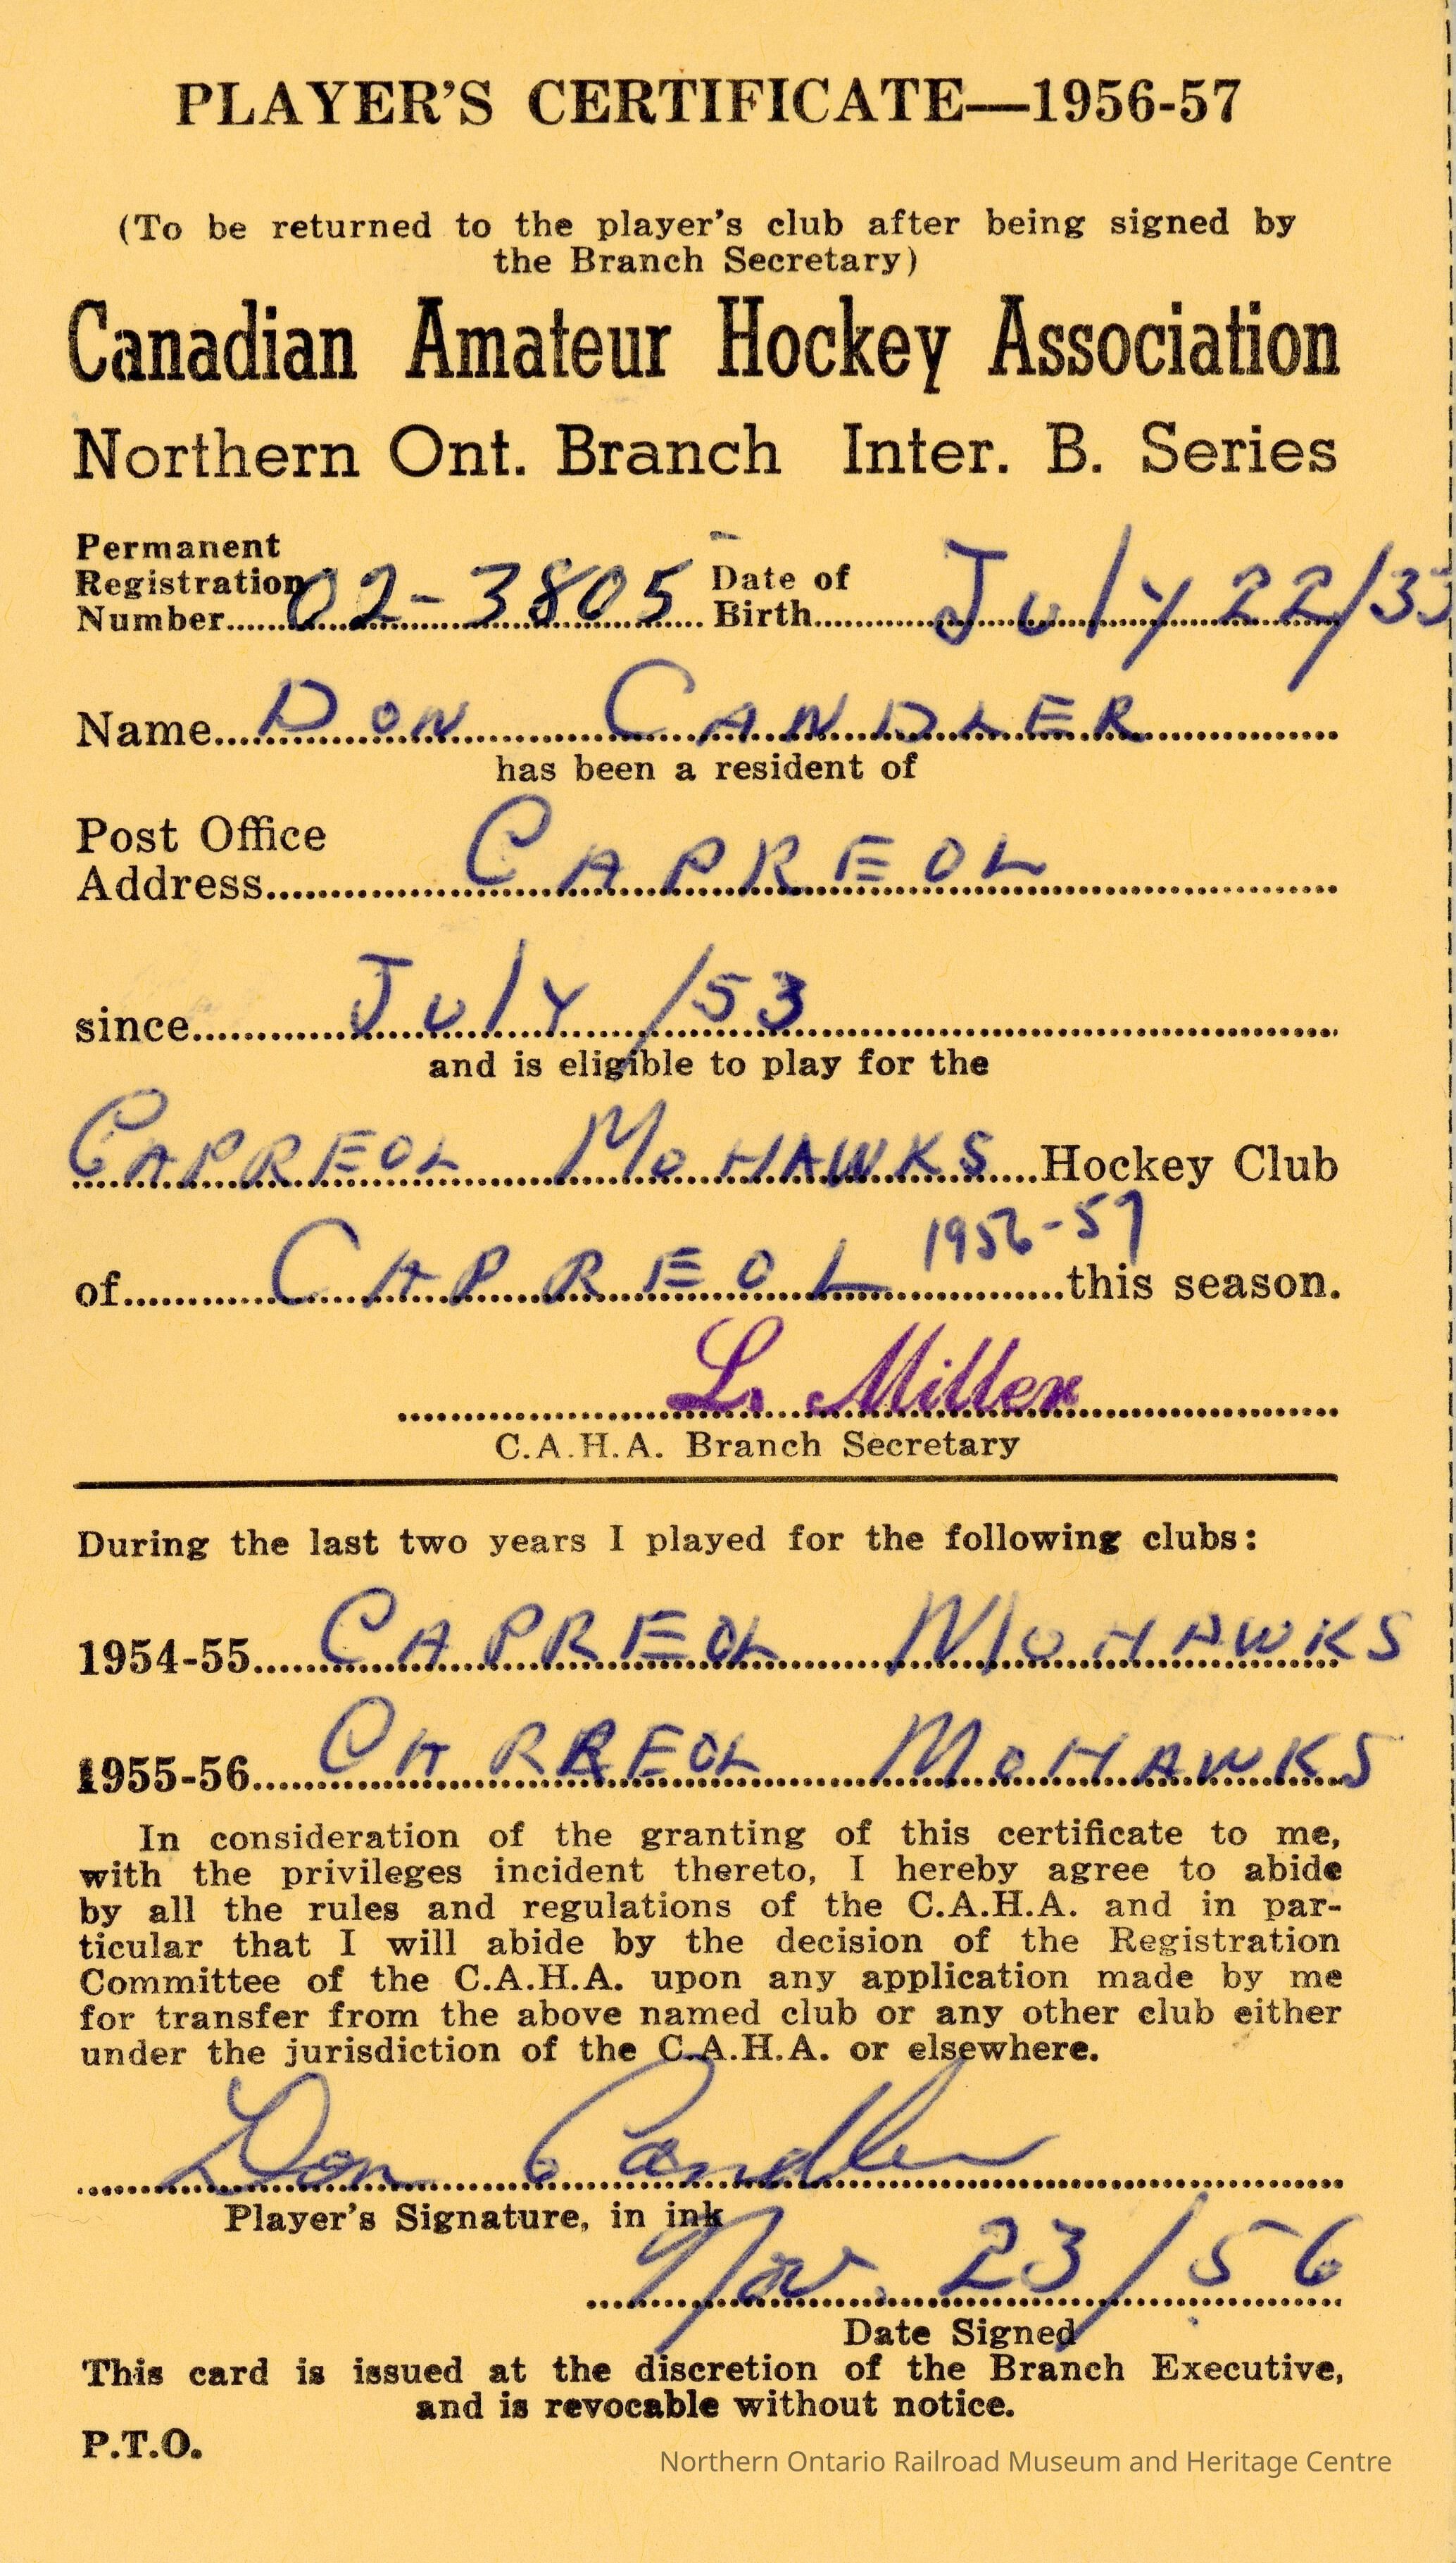 PLAYER'S CERTIFICATE—1956-57
(To be returned to the player's club after being signed by
the Branch Secretary)
Canadian Amateur Hockey Association
Northern Ont. Branch Inter. B. Series
Permanent
Registration Number 02-3805 Date of Birth July 22/33
Name DON CANDLER
has been a resident of
Post Office
Address CAPREOL
since July /53
and is eligible to play for the
CAPREOL MOHAWKS Hockey Club
1956-57
of CAPREOL this season.
L. Miller
C.A.H.A. Branch Secretary
During the last two years I played for the following clubs:
1954-55 CAPREOL MOHAWKS
1955-56 CAPREOL MOHAWKS
In consideration of the granting of this certificate to me,
with the privileges incident thereto, I hereby agree to abide
by all the rules and regulations of the C.A.H.A. and in par-
ticular that I will abide by the decision of the Registration
Committee of the C.A.H.A. upon any application made by me
for transfer from the above named club or any other club either
under the jurisdiction of the C.A.H.A. or elsewhere.
Don Candler
Player's Signature, in ink
Nov. 23/56
Date Signed
This card is issued at the discretion of the Branch Executive,
and is revocable without notice.
P.T.O.
Northern Ontario Railroad Museum and Heritage Centre